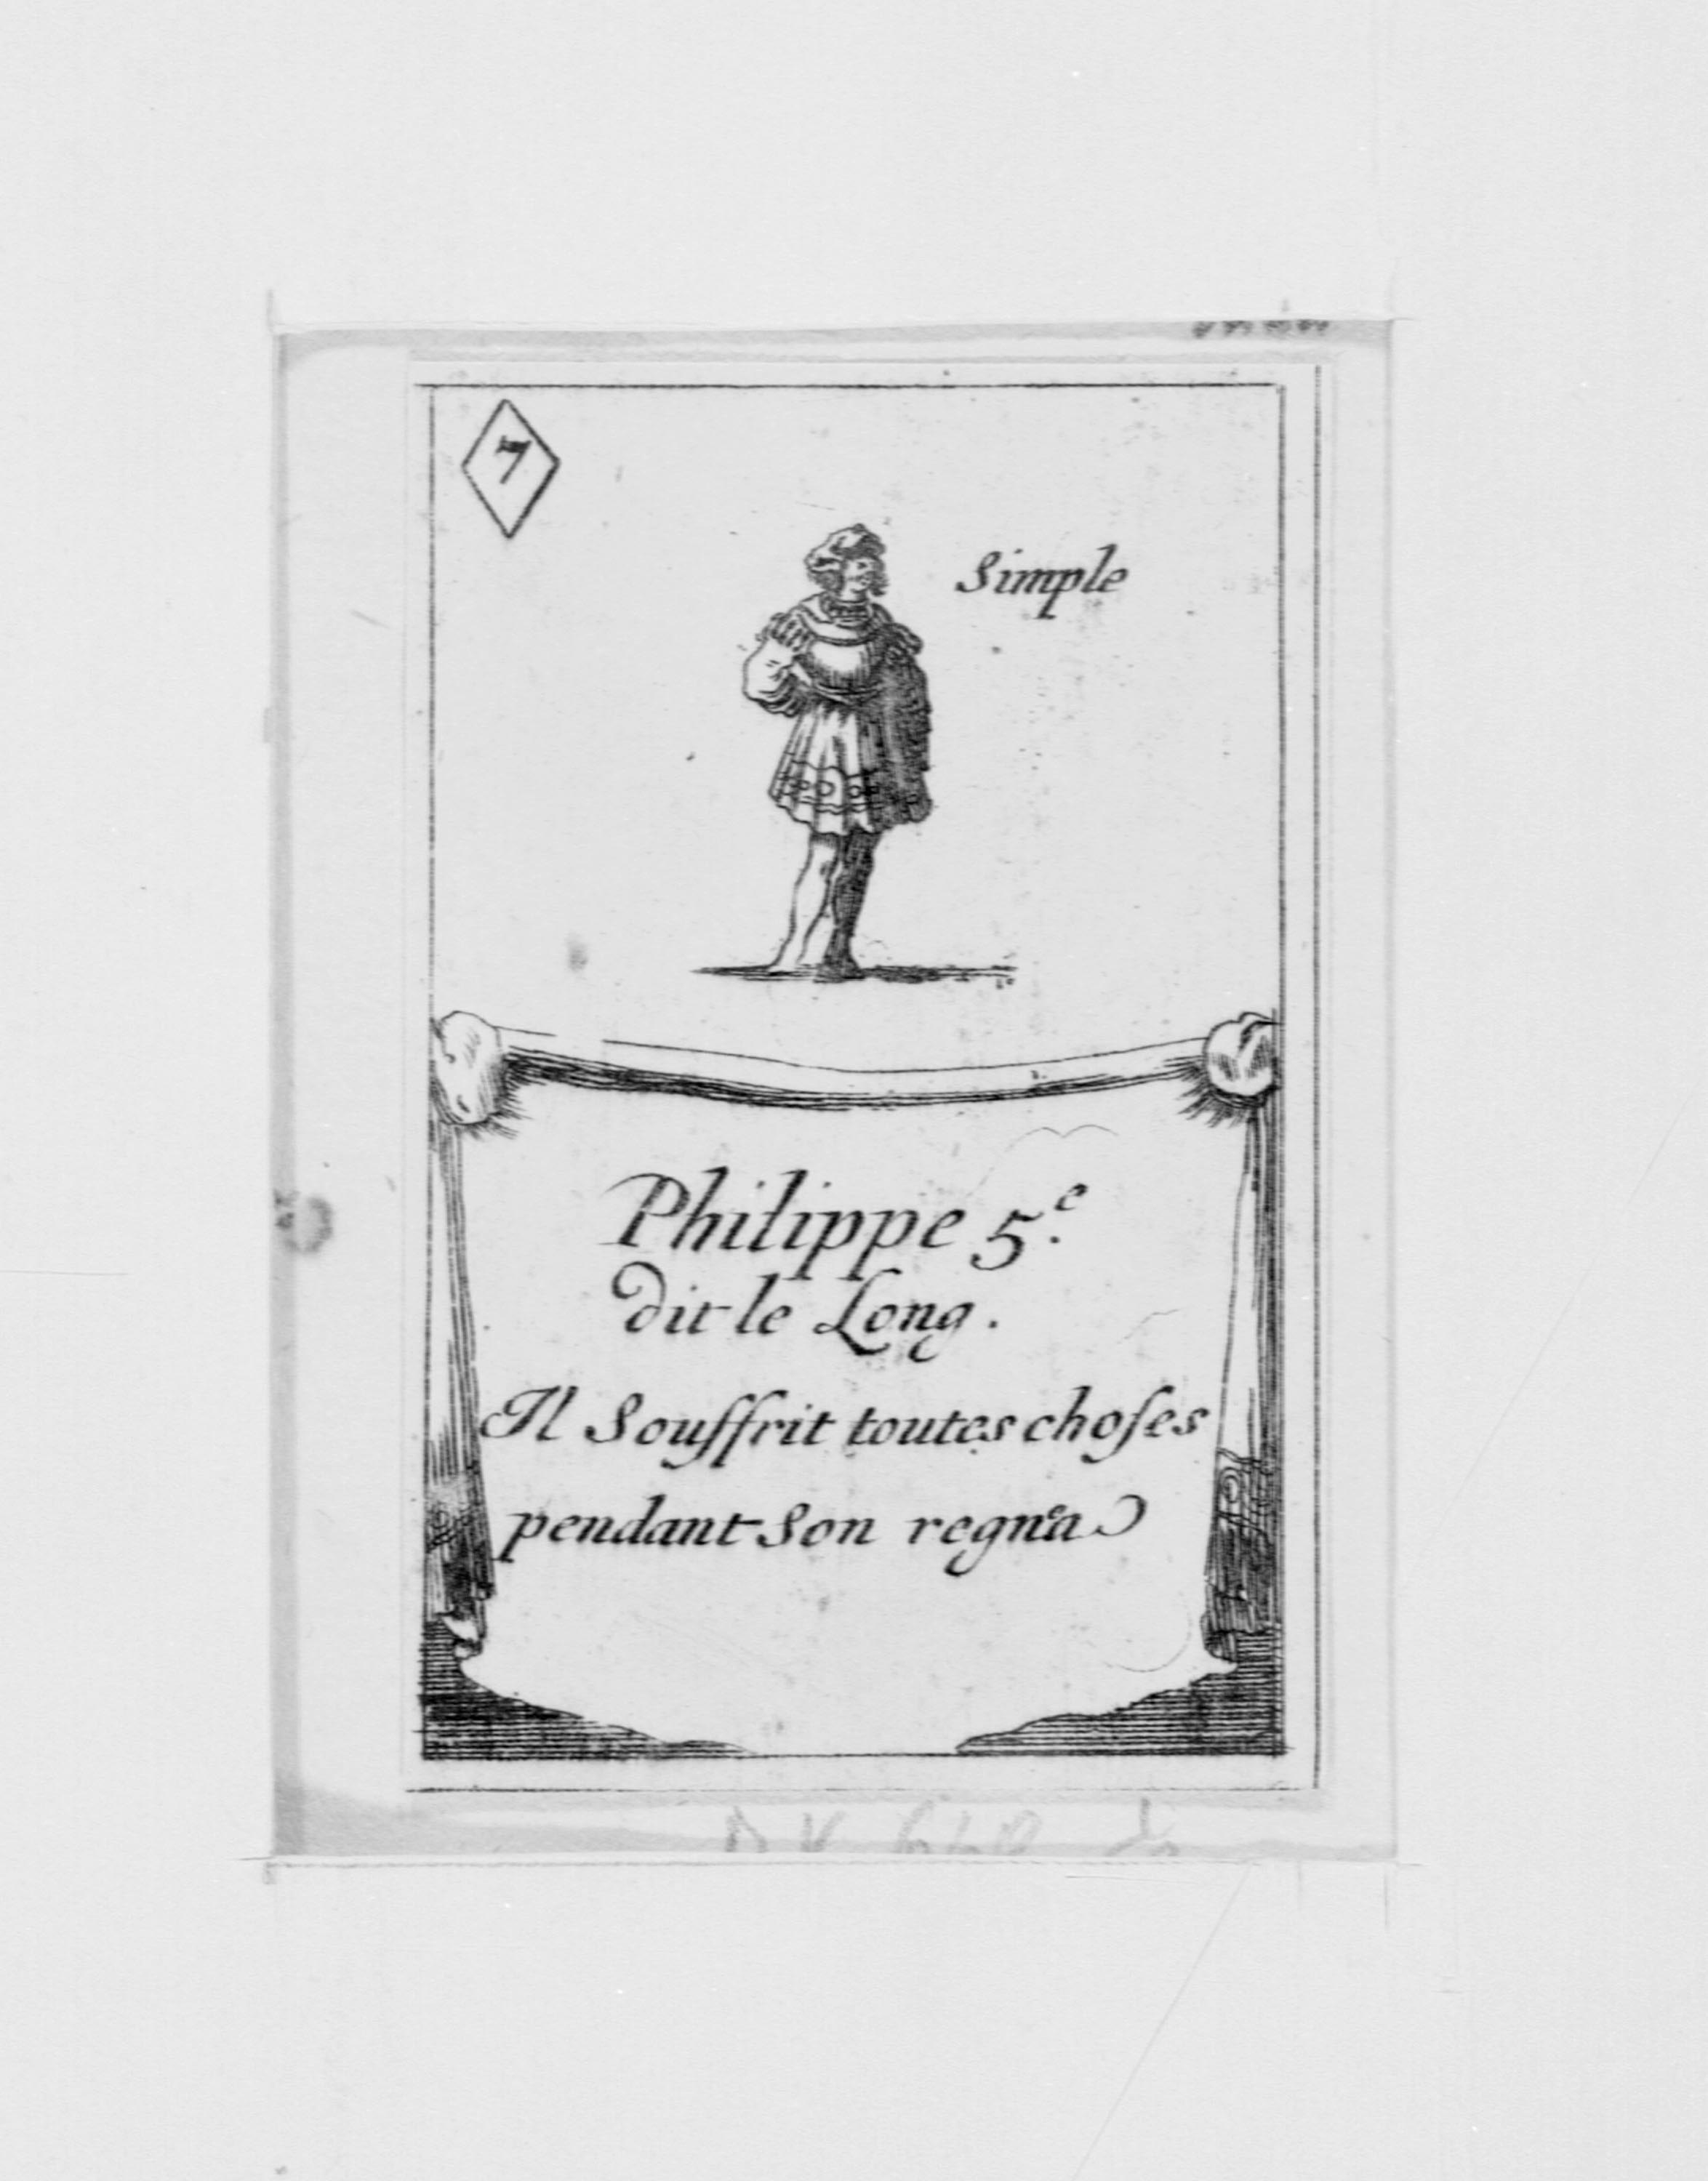 7
Simple
Philippe 5.e
dit le Long.
Il Souffrit toutes choſes
pendant Son